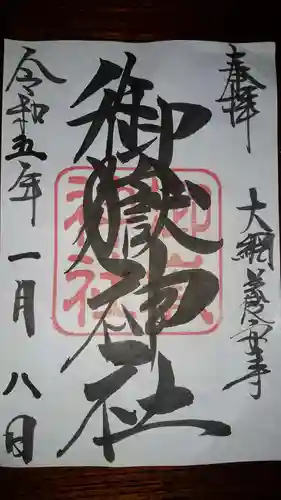 奉拝
大網
御嶽神社
御嶽
神社
令和五年一月八日